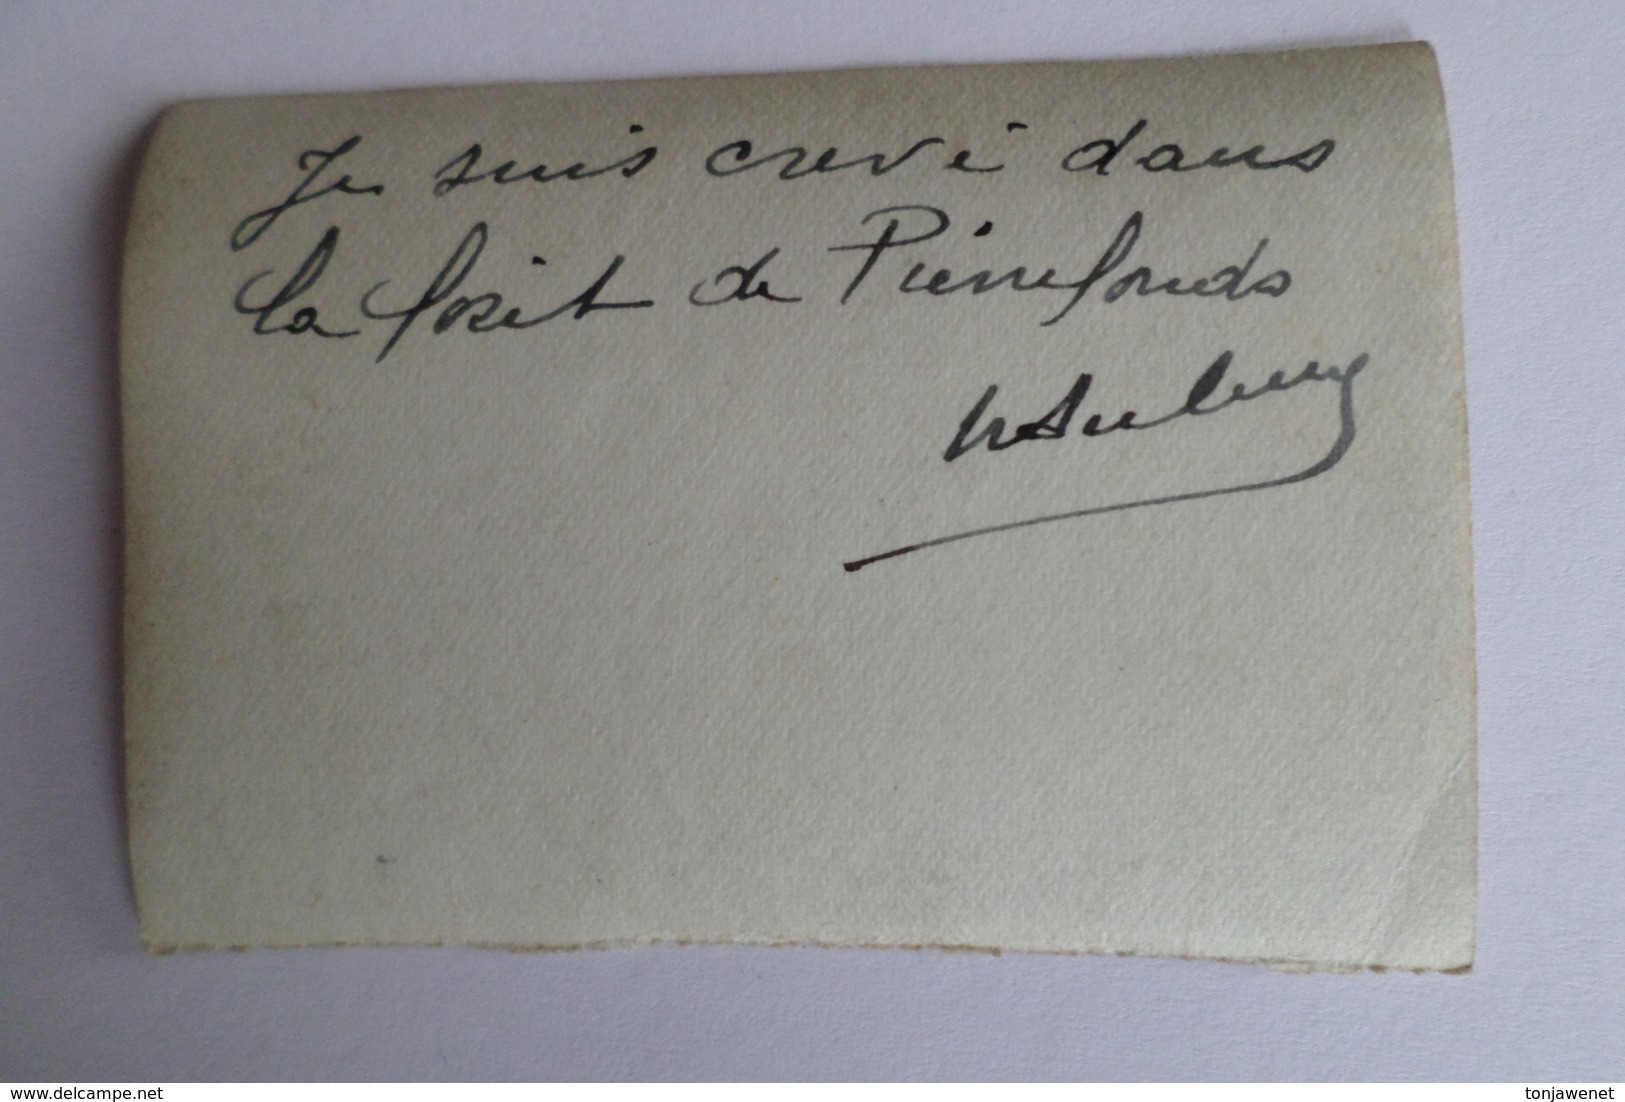 Je suis crevé dans
la forêt de Pierrefonds
www.delcampe.net
tonjawenet